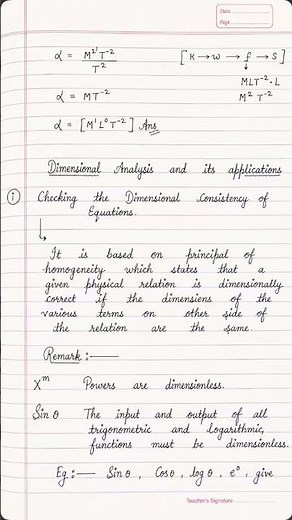 Date
Page
α = M²T⁻² / T²
[K → w → f → S]
↓
MLT⁻²·L
α = MT⁻²
M² T⁻²
α = [M¹L⁰T⁻²] Ans
Dimensional Analysis and its applications
① Checking the Dimensional Consistency of
Equations.
It is based on principal of
homogeneity which states that a
given physical relation is dimensionally
correct if the dimensions of the
various terms on other side of
the relation are the same.
Remark :—
Xᵐ Powers are dimensionless.
Sin θ The input and output of all
trigonometric and logarithmic,
functions must be dimensionless.
Eg :— Sin θ, Cos θ, log θ, e⁰, give
Teacher's Signature